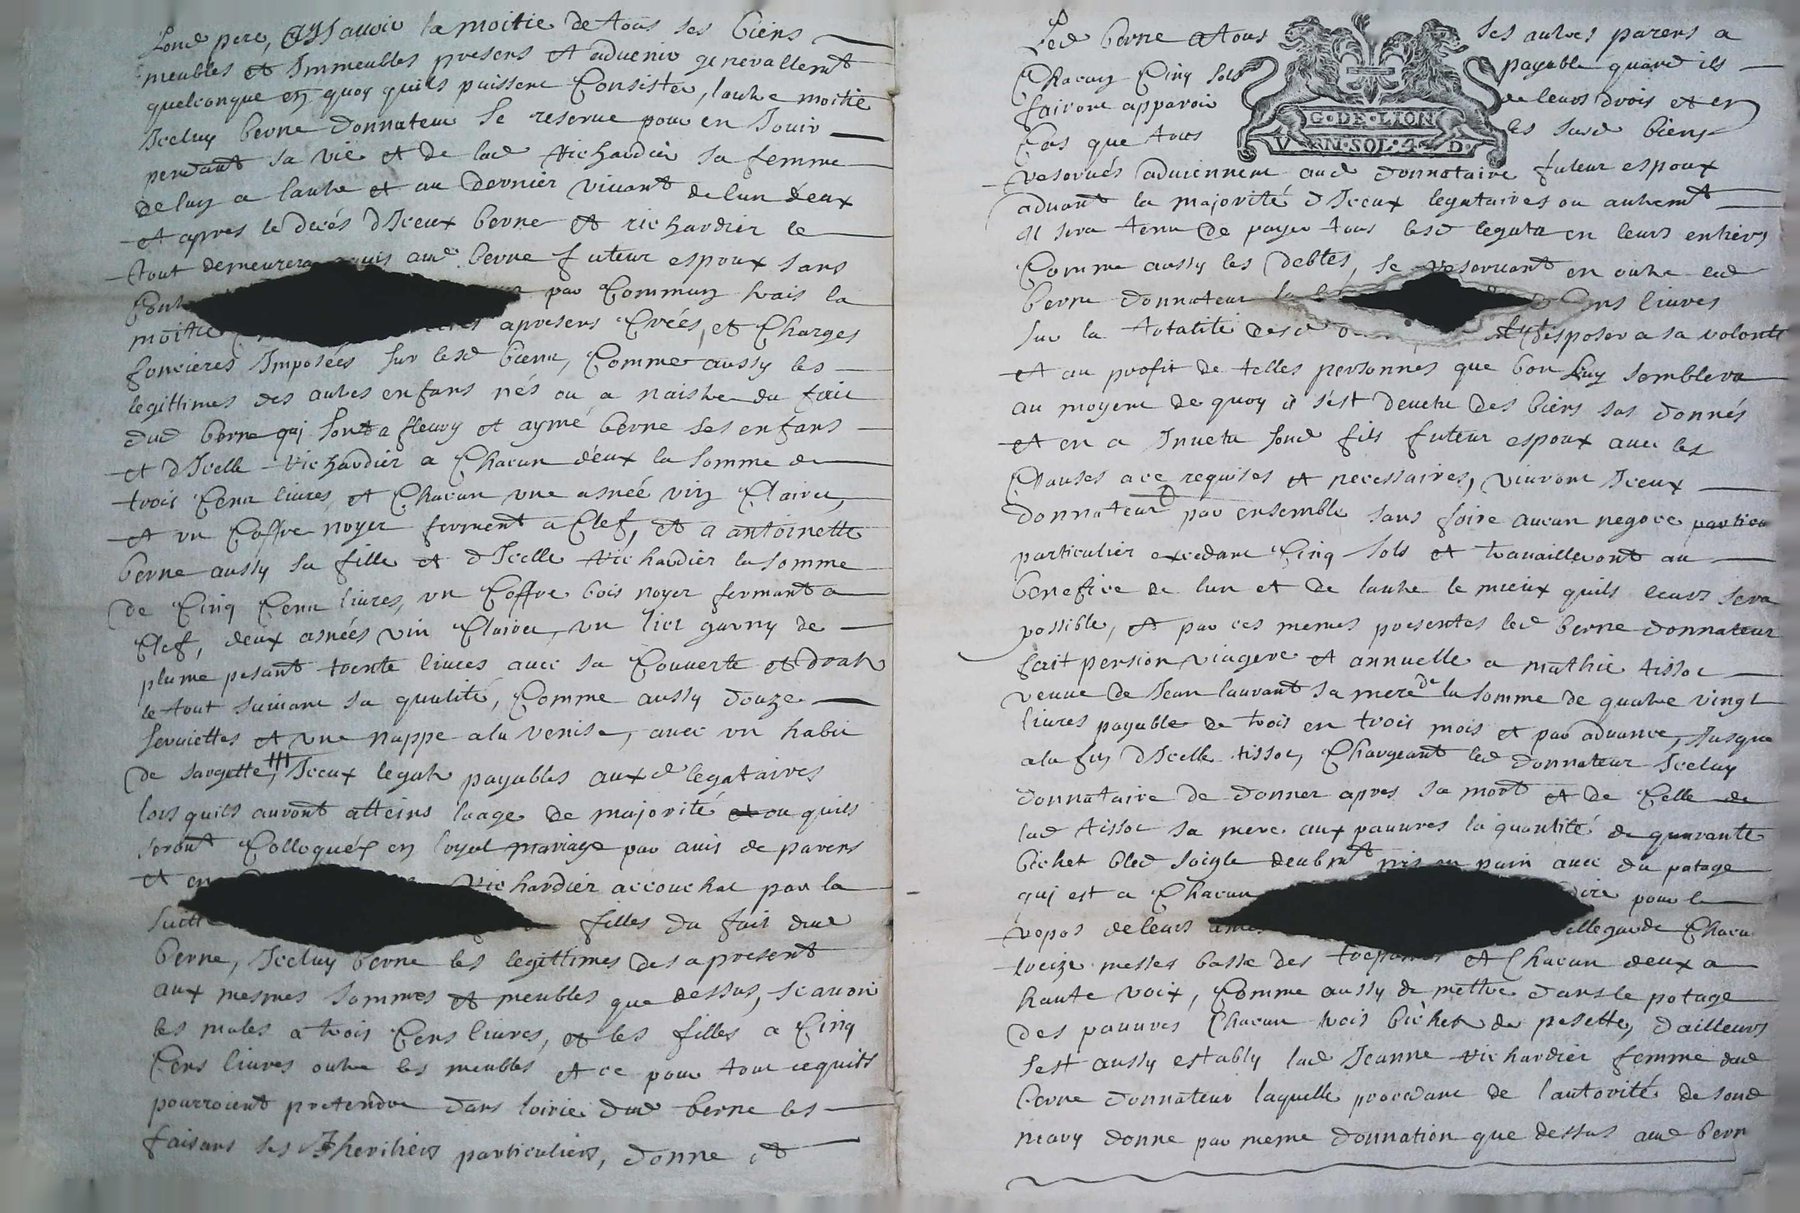 Sond pere, Assavoir la moitie de tous ses biens
meubles et Immeubles presens et advenir generallemt
quelconque en quoy quils puissent Consister, lautre moitie
Iceluy berne donnateur se reserve pour en Jouir
pendant sa vie et de lad Richardier sa femme
de luy a lautre et au dernier vivant de lun deux
et apres le deces dIceux berne et richardier le
tout demeurera aud berne futeur espoux sans
par Commun frais la
moitie apresens Creés, et Charges
foncieres Imposeés sur lesd biens, Comme aussy les
legittimes des autres enfans nés ou a naistre du fait
dud berne qui sont a fleury et aymé berne ses enfans
et dIcelle Richardier a Chacun deux la somme de
trois Cens livres, et Chacun une asneé vin Clairet,
et un Coffre noyer ferment a Clef, et a antoinette
berne aussy sa fille et dIcelle Richardier la somme
de Cinq Cens livres, un Coffre bois noyer fermant a
Clef, deux asneés vin Clairet, un lict garny de
plume pesant trente livres avec sa Couverte et drah
le tout suivant sa qualité, Comme aussy douze
serviettes et une nappe a la venise, avec un habit
de sargette, Iceux legats payables auxd legataires
lors quils auront atteins laage de majorité et ou quils
seront Colloqués en loyal mariage par avis de parens
et en Richardier accouchat par la
suitte filles du fait dud
berne, Iceluy berne les legittimes des apresent
aux mesmes sommes et meubles que dessus, scavoir
les males a trois Cens livres, et les filles a Cinq
Cens livres outre les meubles et ce pour tout ce quils
pourroient pretendre dans loirie dud berne les
faisans ses heritiers particuliers, donne et
Led berne a tous ses autres parens a
Chacun Cinq sols payable quand ils
fairont apparoir de leurs drois et en
Cas que tous les susd biens
G·DE·LION
VN·SOL·4·D·
reservés adviennent aud donnataire futeur espoux
advant la majorité dIceux legataires ou autremt
Il sera tenu de payer tous lesd legats en leurs entiers
Comme aussy les debtes, se reservant en outre led
berne donnateur la livres
sur la totalité desd disposer a sa volonté
et au profit de telles personnes que bon luy semblera
au moyent de quoy il sest devetu des biens sus donnés
et en a Invetu sond fils futeur espoux avec les
Clauses a ce requises et necessaires, vivront Iceux
donnateurs par ensemble sans faire aucun negoce partieu
particulier excedant Cinq sols et travailleront au
benefice de lun et de lautre le mieux quils leurs sera
possible, et par ces memes presentes led berne donnateur
fait pension viagere et annuelle a mathie tissot
veuve de Jean lauvant sa mere de la somme de quatre vingt
livres payable de trois en trois mois et par advance, Jusque
a la fin dIcelle tissot, Chargeant led donnateur Iceluy
donnataire de donner apres sa mort et de Celle de
lad tissot sa mere aux pauvres la quantité de quarante
bichet bled soigle pain avec du potage
qui est a Chacun pour le
repos de leurs ames Chacu
treize messes basse des trepasses et Chacun deux a
haute voix, Comme aussy de mettre dans le potage
des pauvres Chacun trois bichet de pesette, dailleurs
sest aussy estably lad Jeanne Richardier femme dud
berne donnateur laquelle procedant de lautorité de sond
mary donne par meme donnation que dessus aud bern